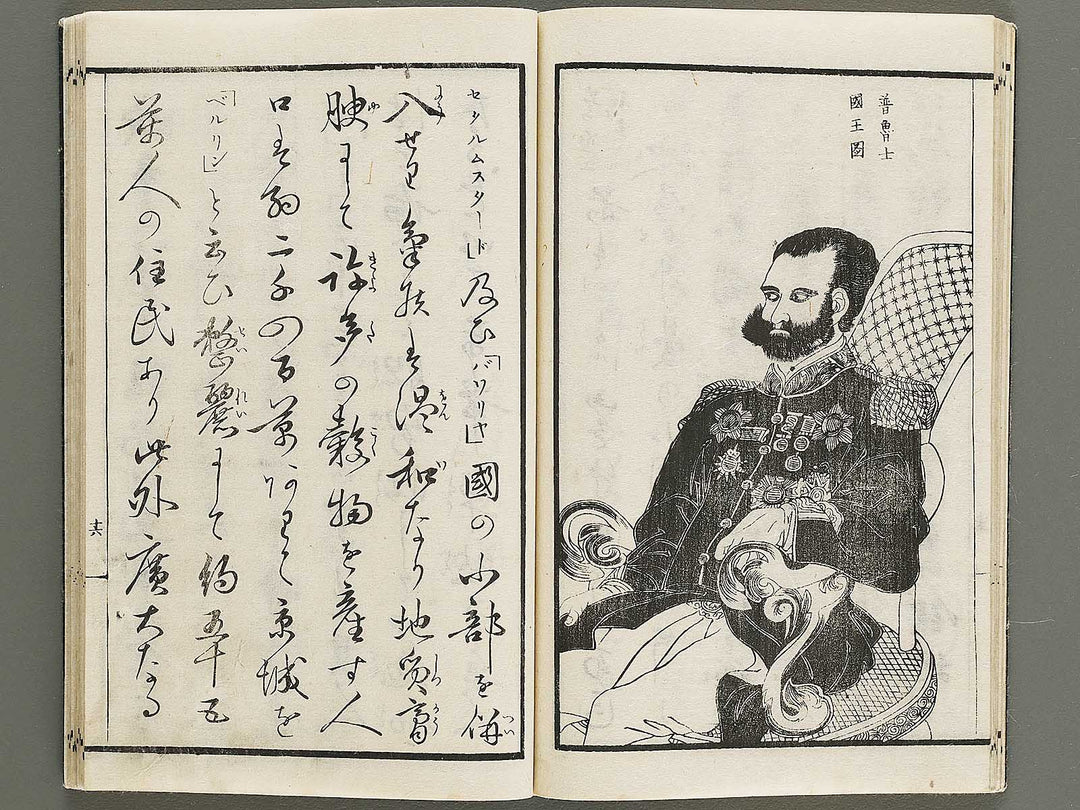 普魯士
國王圖
セタルムスタード」及ひ「バワリヤ」國の小部を併
入せり氣候は温和なり地質膏
腴にして許多の穀物を産す人
口は約二千四百萬ありて京城を
「ベルリン」と云ひ整麗にして約五十五
萬人の住民あり此外廣大なる
十六